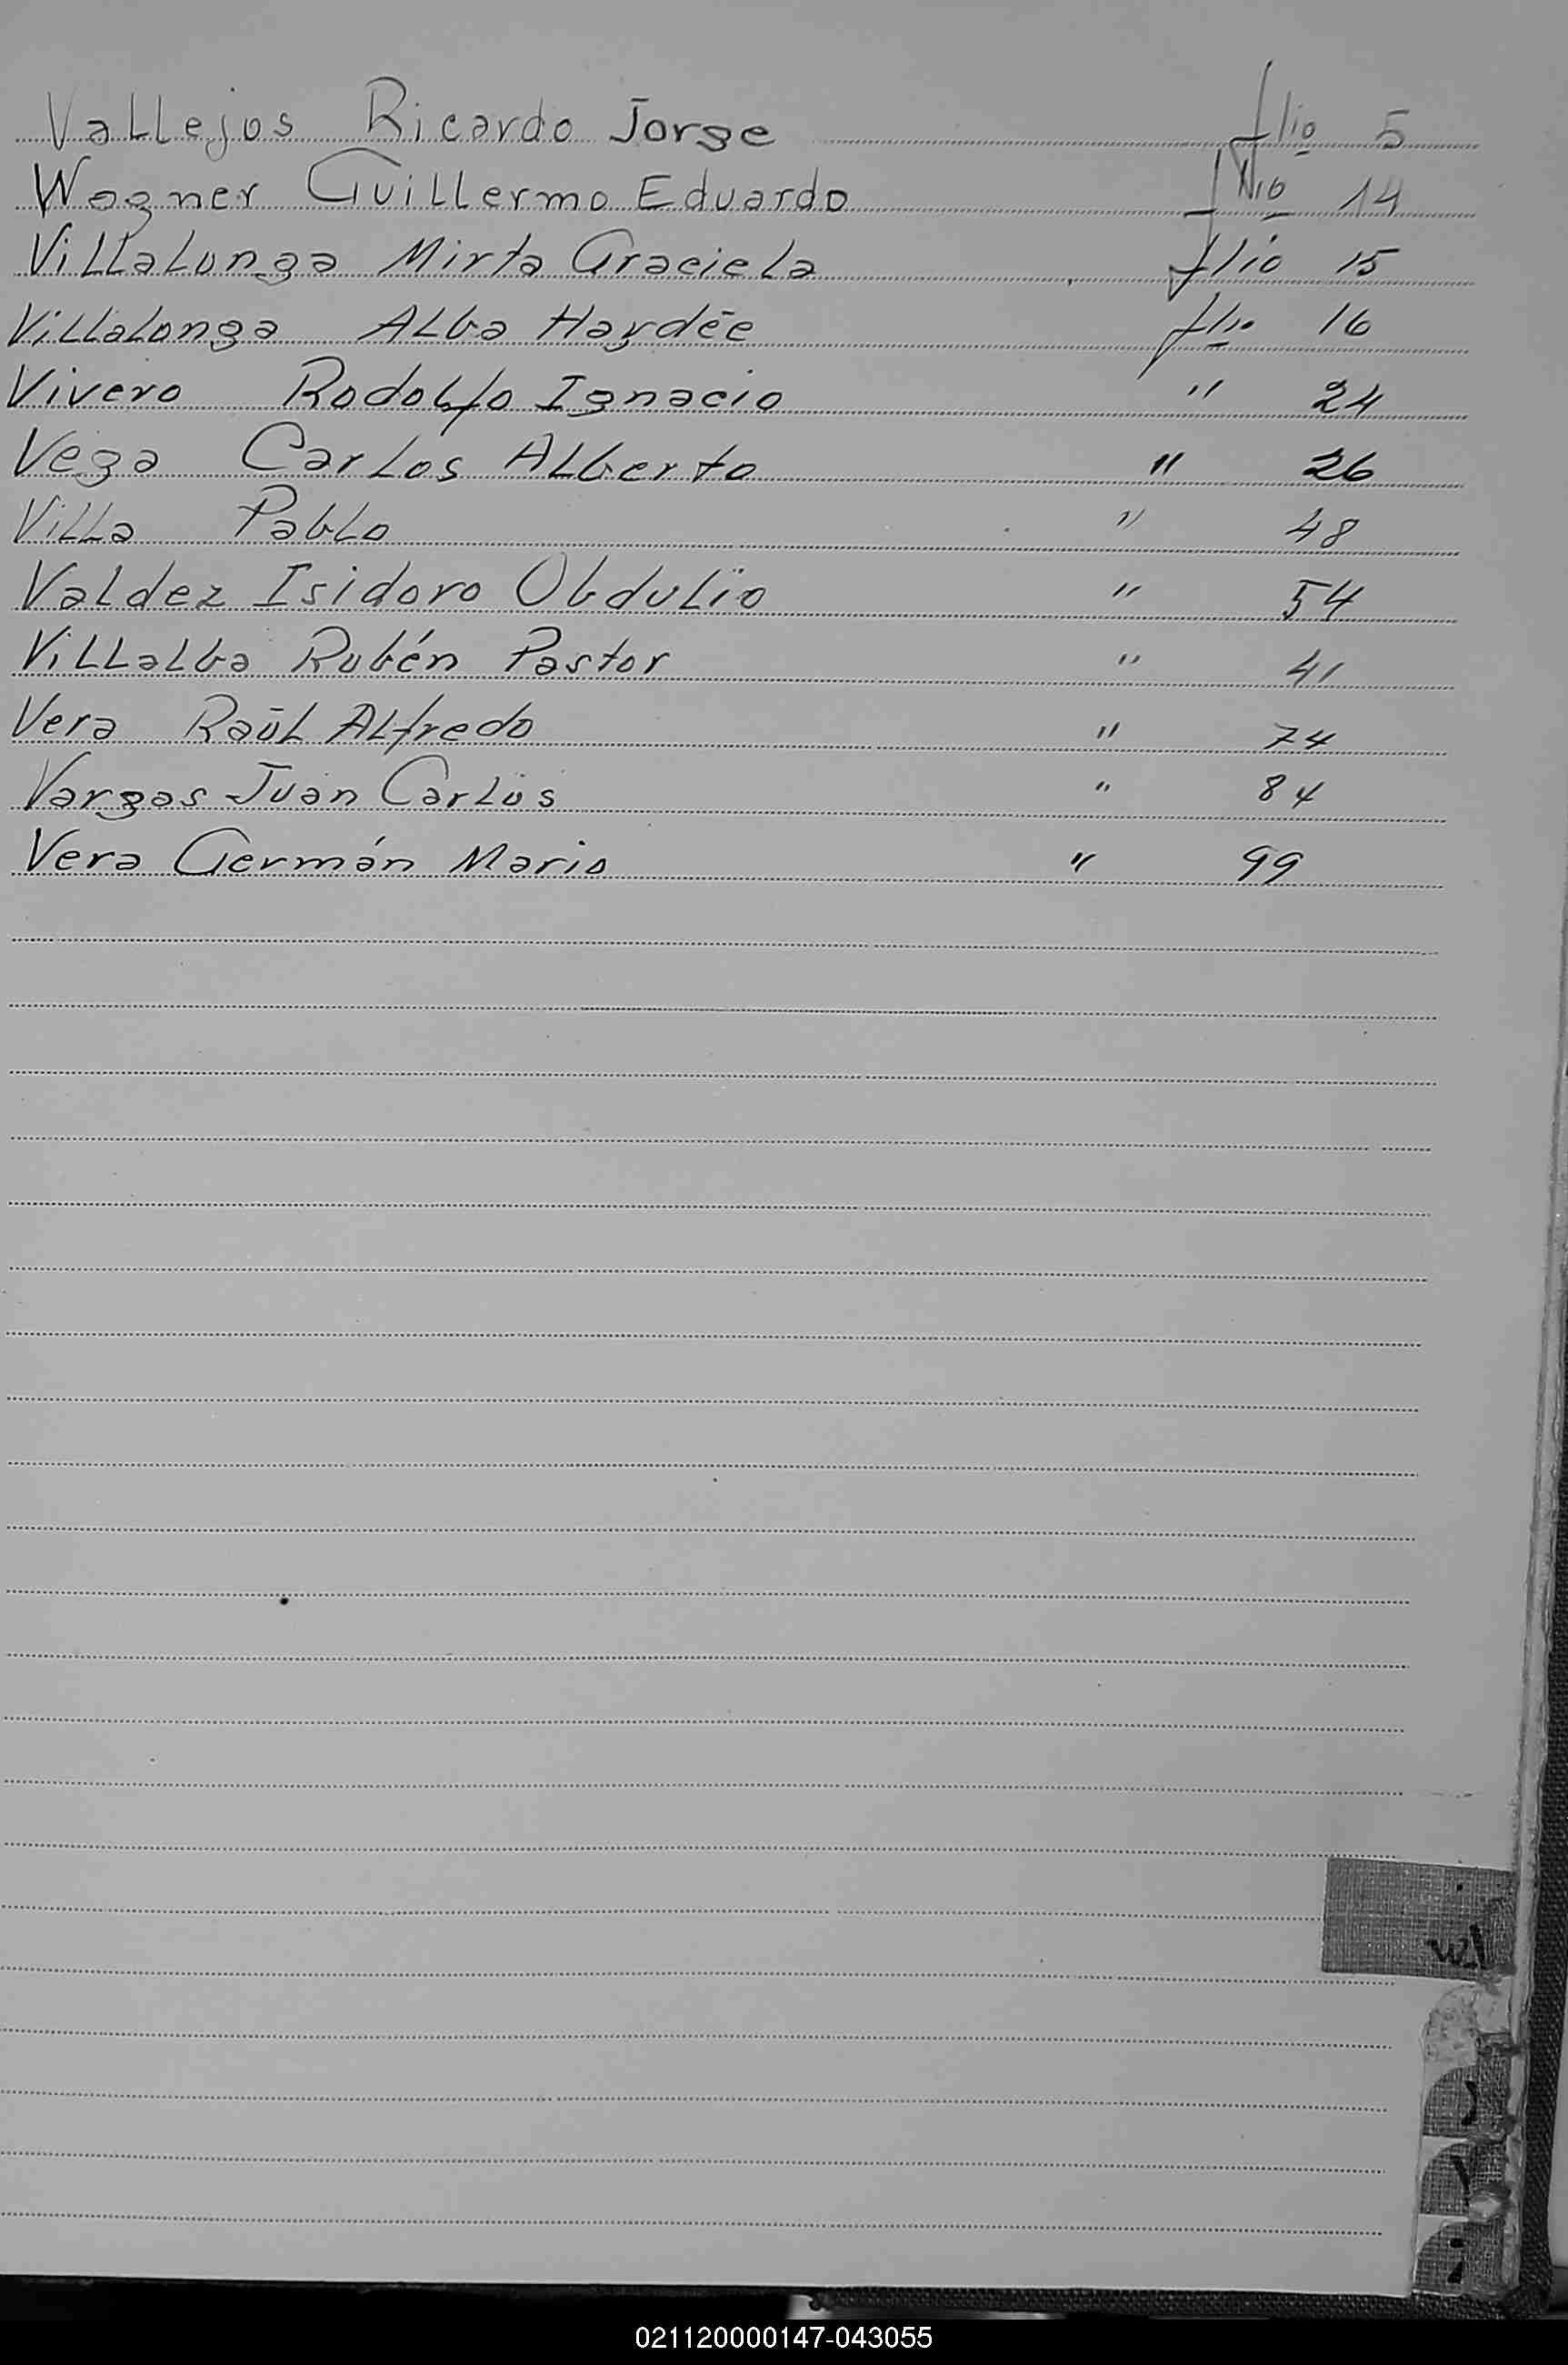 Vallejos Ricardo Jorge flio 5
Wagner Guillermo Eduardo flio 14
Villalonga Mirta Graciela flio 15
Villalonga Alba Haydée flio 16
Vivero Rodolfo Ignacio " 24
Vega Carlos Alberto " 26
Villa Pablo " 48
Valdez Isidoro Obdulio " 54
Villalba Rubén Pastor " 41
Vera Raúl Alfredo " 74
Vargas Juan Carlos " 84
Vera Germán Mario " 99
021120000147-043055